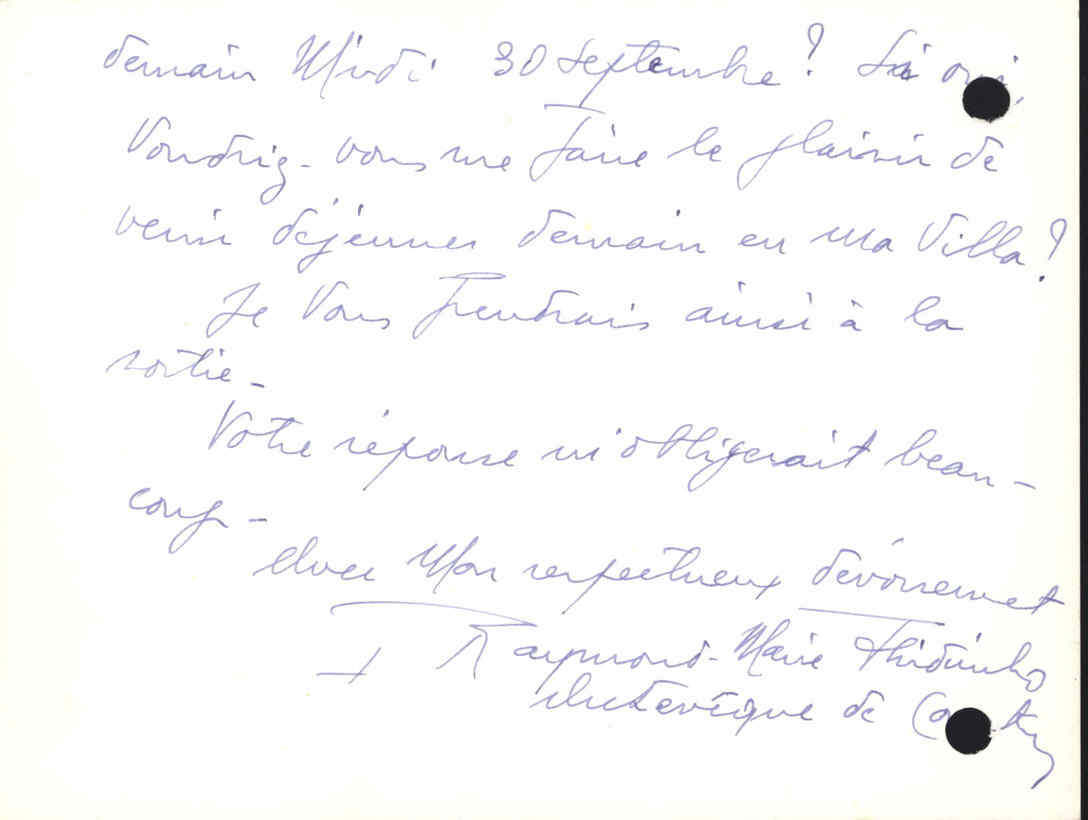 demain Midi 30 septembre? Si oui,
Voudriez-vous me faire le plaisir de
venir déjeuner demain en ma Villa?
Je Vous prendrais ainsi à la
sortie-
Votre réponse m'obligerait beau-
coup-
Avec Mon respectueux dévouement
+ Raymond-Marie Tchidimbo
Archevêque de